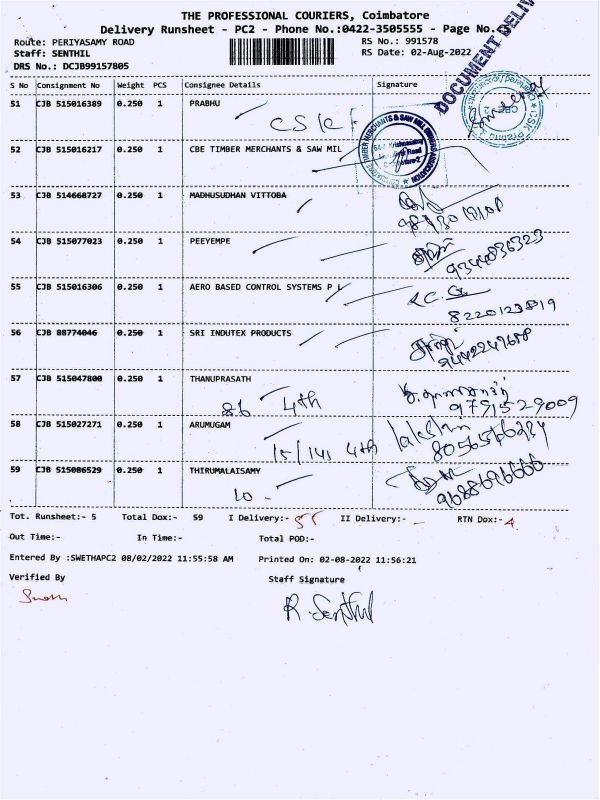 THE PROFESSIONAL COURIERS, Coimbatore
Delivery Runsheet - PC2 - Phone No.:0422-3505555 - Page No.
Route: PERIYASAMY ROAD RS No.: 991578
Staff: SENTHIL RS Date: 02-Aug-2022
DRS No.: DCJB99157805
DOCUMENT
S No Consignment No Weight PCS Consignee Details Signature
51 CJB 515016389 0.250 1 PRABHU
CSK
52 CJB 515016217 0.250 1 CBE TIMBER MERCHANTS & SAW MIL
53 CJB 514668727 0.250 1 MADHUSUDHAN VITTOBA
54 CJB 515077023 0.250 1 PEEYEMPE
9344036323
55 CJB 515016306 0.250 1 AERO BASED CONTROL SYSTEMS P L
8220123819
56 CJB 88774046 0.250 1 SRI INDUTEX PRODUCTS
57 CJB 515047800 0.250 1 THANUPRASATH
86 4th 9791529009
58 CJB 515027271 0.250 1 ARUMUGAM
15/141 4th
59 CJB 515086529 0.250 1 THIRUMALAISAMY
10 -
Tot. Runsheet:- 5 Total Dox:- 59 I Delivery:- 55 II Delivery:- RTN Dox:- 4
Out Time:- In Time:- Total POD:-
Entered By :SWETHAPC2 08/02/2022 11:55:58 AM Printed On: 02-08-2022 11:56:21
Verified By Staff Signature
R. Senthil